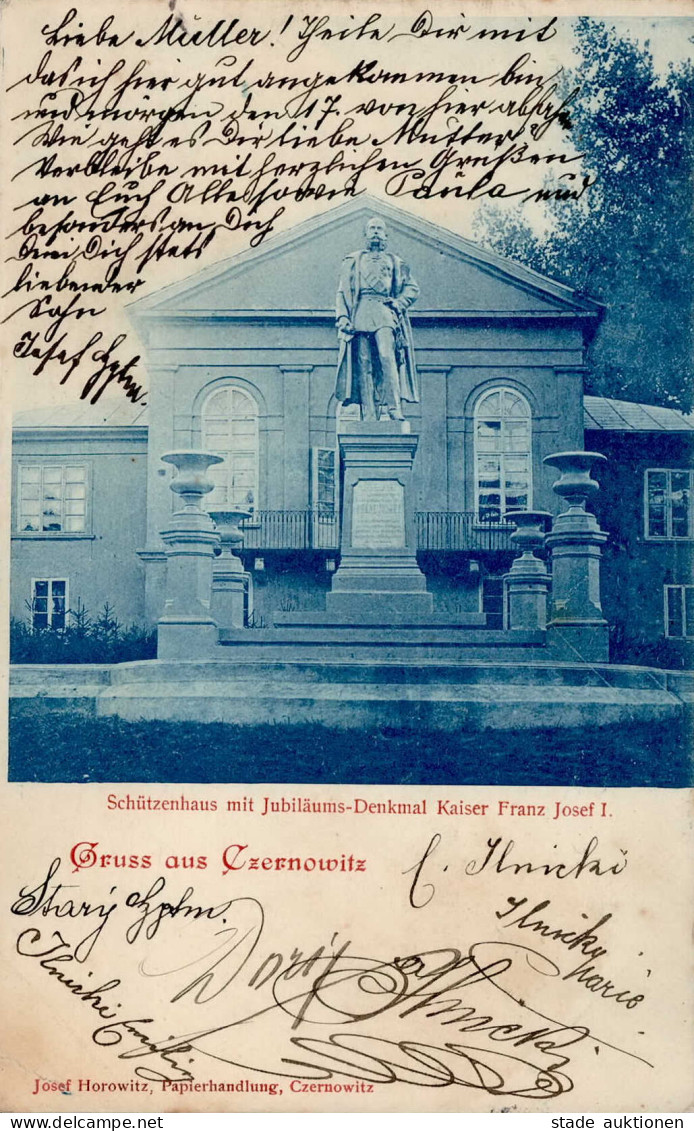 Liebe Müller! Theile Dir mit
das ich hier gut angekommen bin
und morgen den 17. von hier abfahr
Wie geht es Dir liebe Mutter
Verbleibe mit herzlichen Grüßen
an Euch Alle sowie Paula und
besonders an Dich
Dich stets
liebender
Sohn
Josef
Schützenhaus mit Jubiläums-Denkmal Kaiser Franz Josef I.
Gruss aus Czernowitz
C. Ilnicki
Stary
Ilnicky
Mario
Ilnicki
Josef Horowitz, Papierhandlung, Czernowitz
stade auktionen
www.delcampe.net